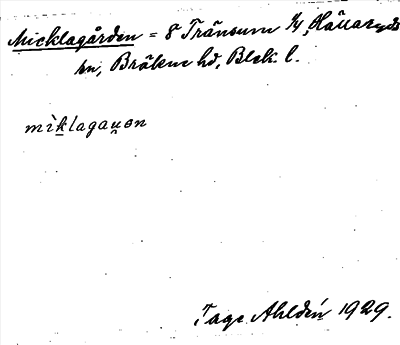 Micklagården = 8 Tränsum 1/4, Hällaryds
sn, Bräkne hd, Blek. l.
mìklagau̯en
Tage Ahldén 1929.